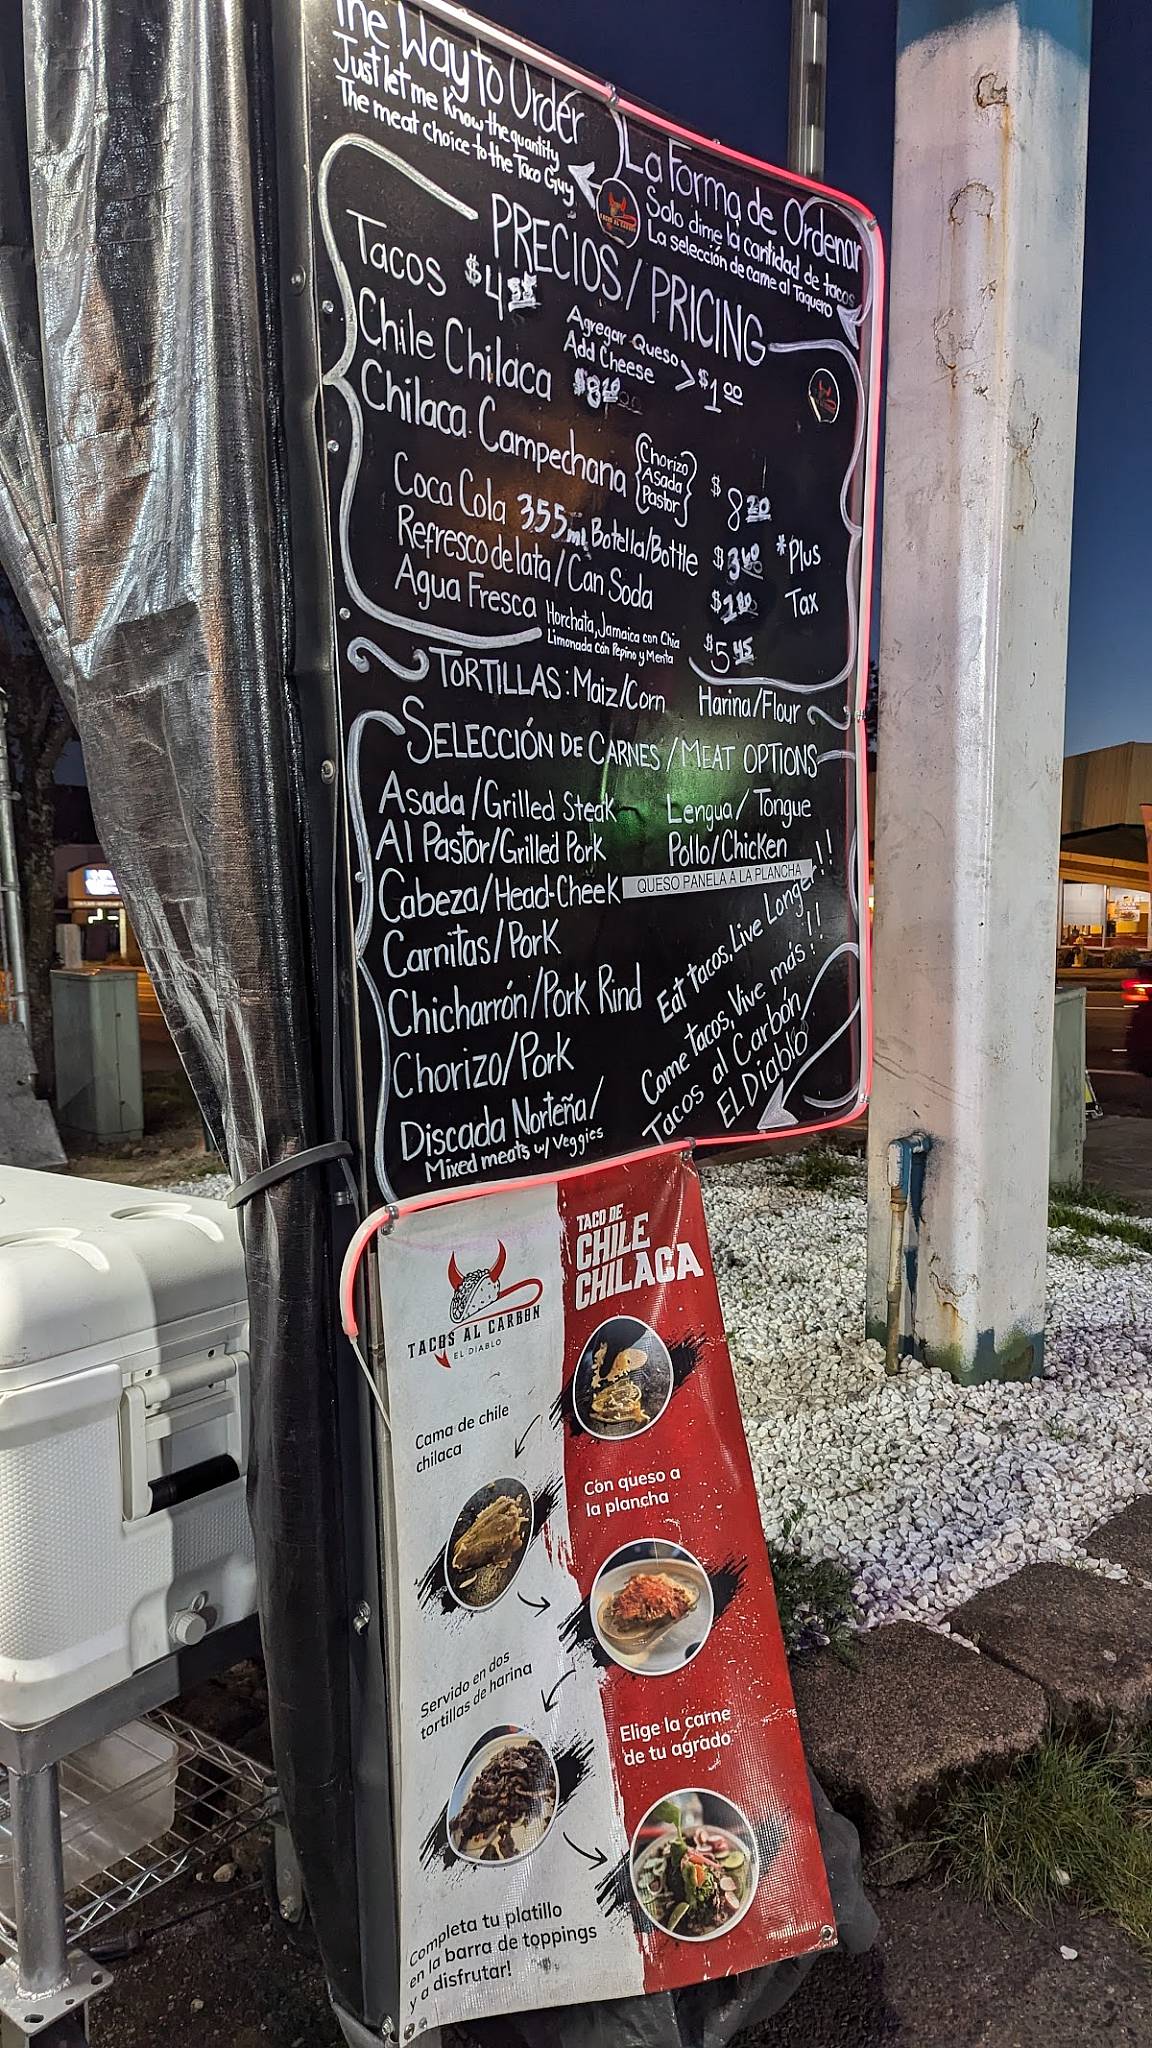 The Way to Order
Just let me know the quantity
The meat choice to the Taco Guy
La Forma de Ordenar
Solo dime la cantidad de tacos
La selección de carne al Taquero
PRECIOS/PRICING
Tacos $4
Agregar Queso
Add Cheese > $1.00
Chile Chilaca
Chilaca Campechana
Chorizo
Asada
Pastor
$8.20
Coca Cola 355ml Botella/Bottle
Refresco de lata/Can Soda
*Plus
Tax
Agua Fresca Horchata, Jamaica con Chia
Limonada con Pepino y Menta
$5.45
TORTILLAS: Maiz/Corn Harina/Flour
SELECCIÓN DE CARNES/MEAT OPTIONS
Asada/Grilled Steak
Al Pastor/Grilled Pork
Cabeza/Head-Cheek
Carnitas/Pork
Chicharrón/Pork Rind
Chorizo/Pork
Discada Norteña/
Mixed meats w/ Veggies
Lengua/Tongue
Pollo/Chicken
QUESO PANELA A LA PLANCHA
Eat tacos, Live Longer!!
Come tacos, Vive más!!
Tacos al Carbón
EL Diablo
TACOS AL CARBON
EL DIABLO
TACO DE
CHILE
CHILACA
Cama de chile
chilaca
Con queso a
la plancha
Servido en dos
tortillas de harina
Elige la carne
de tu agrado
Completa tu platillo
en la barra de toppings
y a disfrutar!